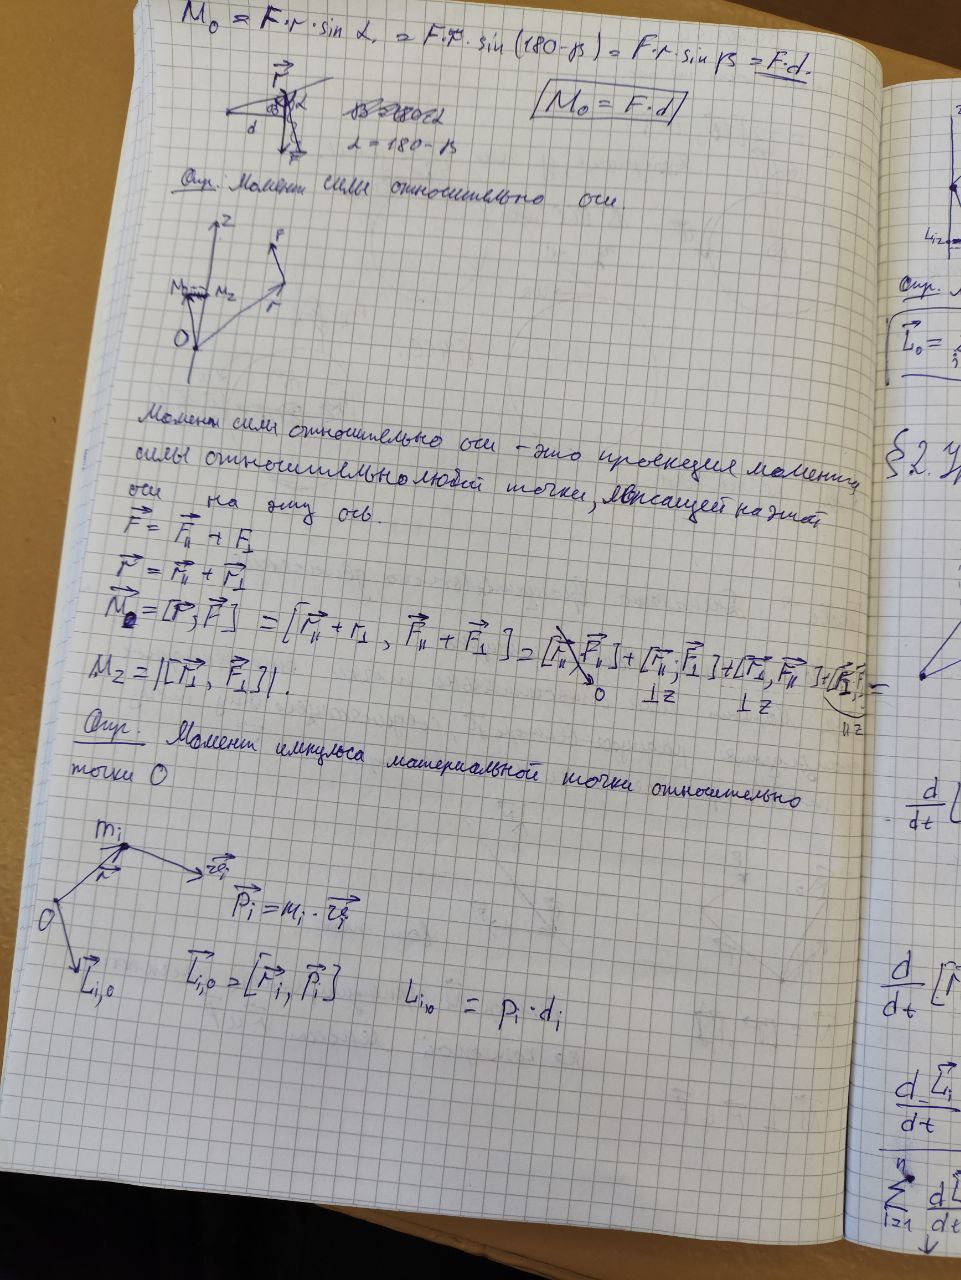 M₀ = F·r·sin α = F·r·sin(180-β) = F·r·sin β = F·d.
r⃗
α
β
d
F⃗
α = 180-β
M₀ = F·d
Опр. Момент силы относительно оси.
z
F
M₀
M_z
r
O
Момент силы относительно оси - это проекция момента
силы относительно любой точки, лежащей на этой
оси на эту ось.
F⃗ = F⃗_∥ + F_⊥
r⃗ = r⃗_∥ + r⃗_⊥
M⃗₀ = [r⃗; F⃗] = [r⃗_∥ + r_⊥, F⃗_∥ + F⃗_⊥] = [r⃗_∥, F⃗_∥] + [r⃗_∥; F⃗_⊥] + [r⃗_⊥, F⃗_∥] + [r⃗_⊥, F⃗_⊥] =
0 ⊥z ⊥z ∥z
M_z = |[r⃗_⊥, F⃗_⊥]|.
Опр. Момент импульса материальной точки относительно
точки O
m_i
r⃗
v⃗_i
O
p⃗_i = m_i · v⃗_i
L⃗_i,0
L⃗_i,0 = [r⃗_i, p⃗_i] L_i,0 = p_i · d_i
L_iz
Опр.
L⃗₀ =
§2. Ур
d/dt [
d/dt [r
dL⃗_i/dt
n
∑
i=1
dL⃗/dt